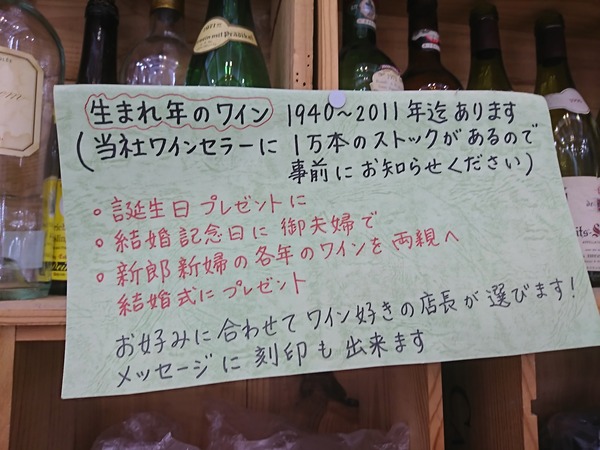 生まれ年のワイン 1940～2011年迄あります
(当社ワインセラーに1万本のストックがあるので
事前にお知らせください)
。誕生日プレゼントに
。結婚記念日に御夫婦で
。新郎新婦の各年のワインを両親へ
結婚式にプレゼント
お好みに合わせてワイン好きの店長が選びます!
メッセージに刻印も出来ます